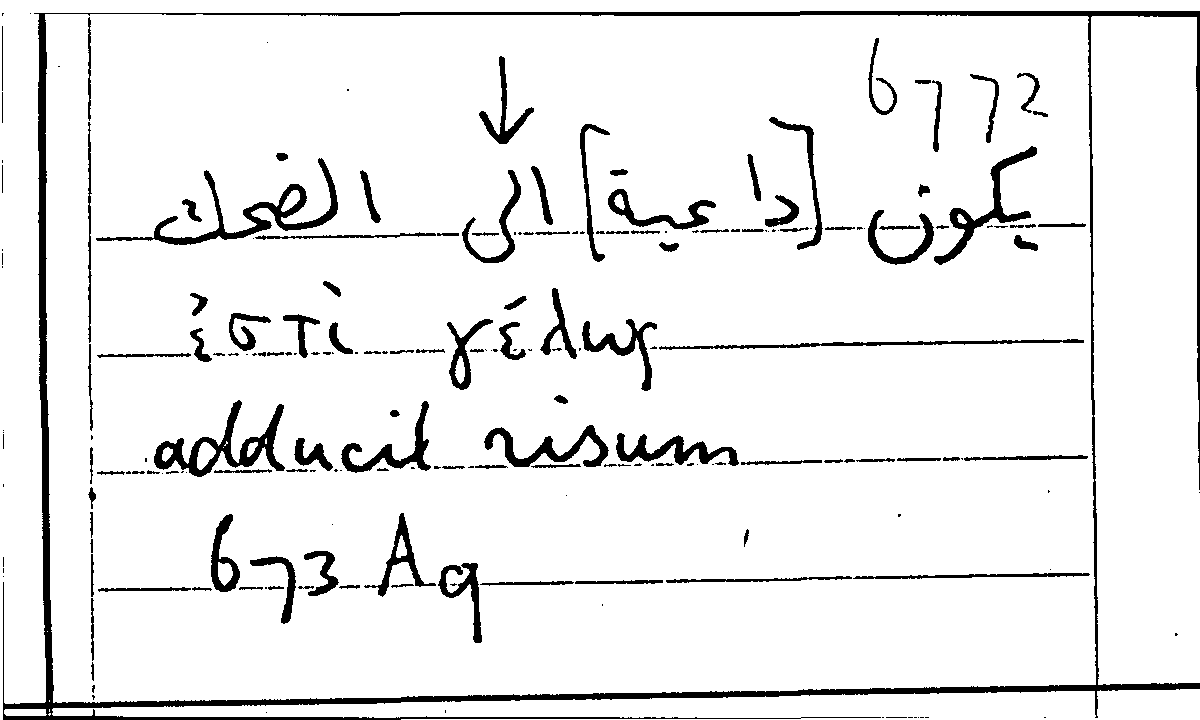 6772
↓
يكون [داعية] الى الضحك
ἐστὶ γέλως
adducit risum
673 Aq